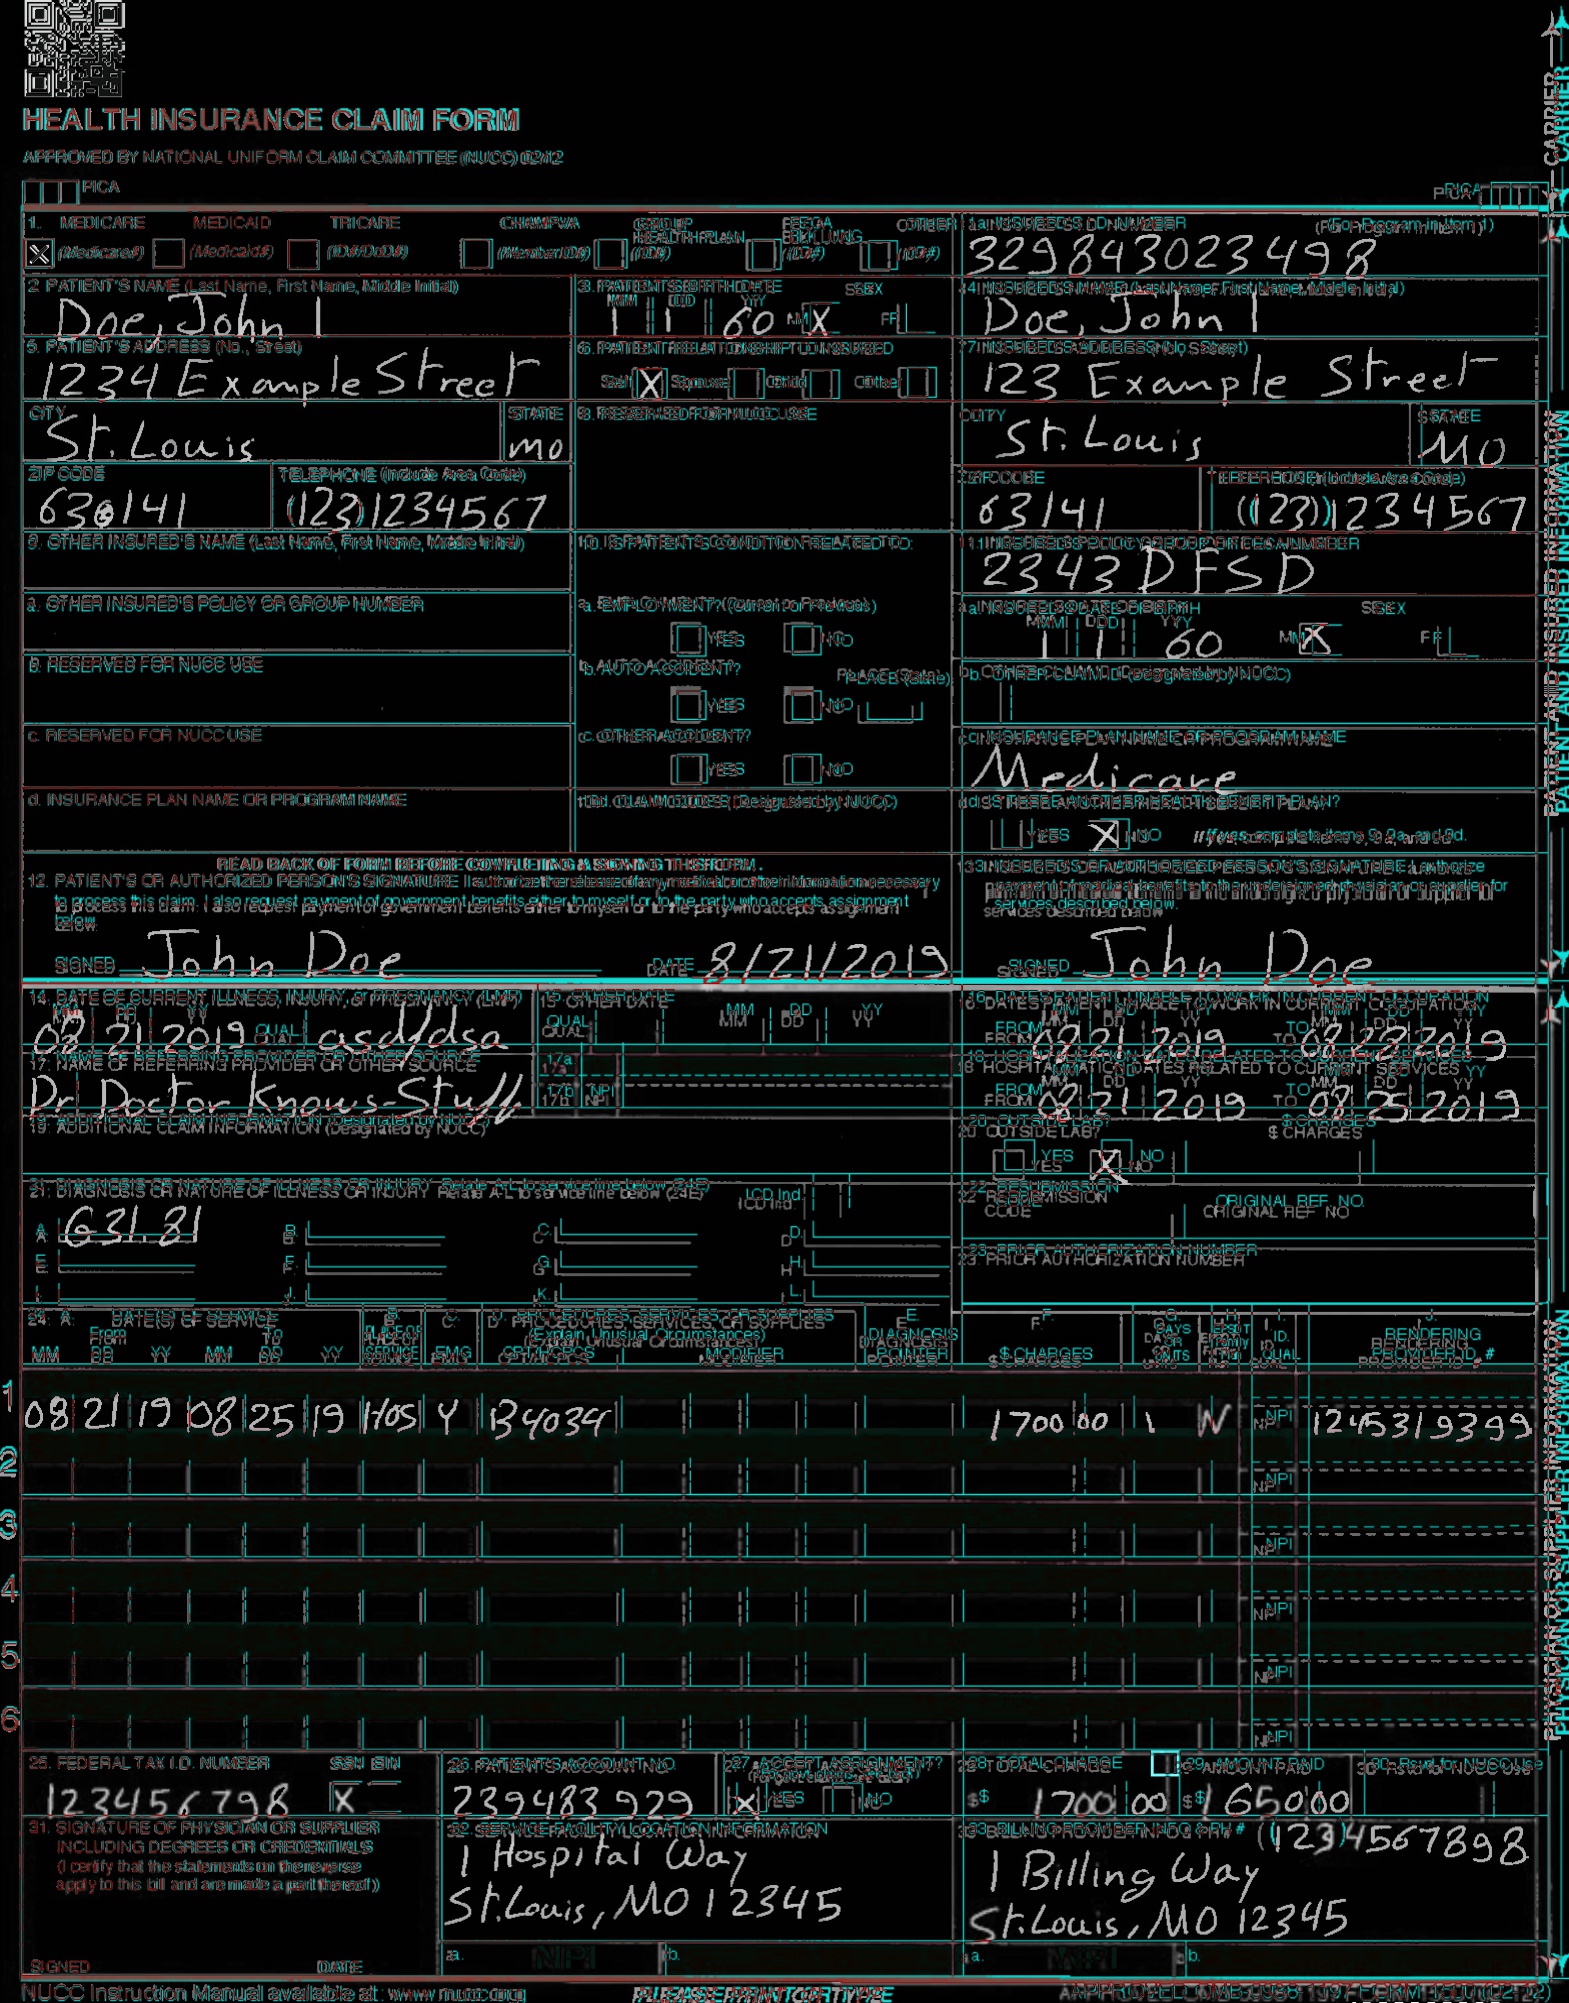 HEALTH INSURANCE CLAIM FORM
APPROVED BY NATIONAL UNIFORM CLAIM COMMITTEE (NUCC) 02/12
PICA
PICA
CARRIER
1. MEDICARE MEDICAID TRICARE CHAMPVA GROUP HEALTH PLAN FECA BLK LUNG OTHER
(Medicare#) (Medicaid#) (ID#/DoD#) (Member ID#) (ID#) (ID#) (ID#)
1a. INSURED'S I.D. NUMBER (For Program in Item 1)
329843023498
2. PATIENT'S NAME (Last Name, First Name, Middle Initial)
Doe, John I
3. PATIENT'S BIRTH DATE SEX
MM DD YY
1 1 60 M X F
4. INSURED'S NAME (Last Name, First Name, Middle Initial)
Doe, John I
5. PATIENT'S ADDRESS (No., Street)
1234 Example Street
6. PATIENT RELATIONSHIP TO INSURED
Self X Spouse Child Other
7. INSURED'S ADDRESS (No., Street)
123 Example Street
CITY STATE
St. Louis mo
8. RESERVED FOR NUCC USE
CITY STATE
St. Louis MO
ZIP CODE TELEPHONE (Include Area Code)
(123) 1234567
ZIP CODE TELEPHONE (Include Area Code)
63141 (123) 1234567
9. OTHER INSURED'S NAME (Last Name, First Name, Middle Initial)
10. IS PATIENT'S CONDITION RELATED TO:
11. INSURED'S POLICY GROUP OR FECA NUMBER
2343DFSD
a. OTHER INSURED'S POLICY OR GROUP NUMBER
a. EMPLOYMENT? (Current or Previous)
YES NO
a. INSURED'S DATE OF BIRTH SEX
MM DD YY
1 1 60 M X F
b. RESERVED FOR NUCC USE
b. AUTO ACCIDENT? PLACE (State)
YES NO
b. OTHER CLAIM ID (Designated by NUCC)
c. RESERVED FOR NUCC USE
c. OTHER ACCIDENT?
YES NO
c. INSURANCE PLAN NAME OR PROGRAM NAME
Medicare
d. INSURANCE PLAN NAME OR PROGRAM NAME
10d. CLAIM CODES (Designated by NUCC)
d. IS THERE ANOTHER HEALTH BENEFIT PLAN?
YES X NO If yes, complete items 9, 9a, and 9d.
PATIENT AND INSURED INFORMATION
READ BACK OF FORM BEFORE COMPLETING & SIGNING THIS FORM.
12. PATIENT'S OR AUTHORIZED PERSON'S SIGNATURE I authorize the release of any medical or other information necessary
to process this claim. I also request payment of government benefits either to myself or to the party who accepts assignment
below.
SIGNED John Doe DATE 8/21/2019
13. INSURED'S OR AUTHORIZED PERSON'S SIGNATURE I authorize
payment of medical benefits to the undersigned physician or supplier for
services described below.
SIGNED John Doe
14. DATE OF CURRENT ILLNESS, INJURY, or PREGNANCY (LMP)
MM DD YY
08 21 2019 QUAL. asdfdsa
15. OTHER DATE
QUAL. MM DD YY
16. DATES PATIENT UNABLE TO WORK IN CURRENT OCCUPATION
MM DD YY MM DD YY
FROM 08 21 2019 TO 08 23 2019
17. NAME OF REFERRING PROVIDER OR OTHER SOURCE
Dr Doctor Knows-Stuff
17a.
17b. NPI
18. HOSPITALIZATION DATES RELATED TO CURRENT SERVICES
MM DD YY MM DD YY
FROM 08 21 2019 TO 08 25 2019
19. ADDITIONAL CLAIM INFORMATION (Designated by NUCC)
20. OUTSIDE LAB? $ CHARGES
YES X NO
21. DIAGNOSIS OR NATURE OF ILLNESS OR INJURY Relate A-L to service line below (24E) ICD Ind.
A. G31.81 B. C. D.
E. F. G. H.
I. J. K. L.
22. RESUBMISSION CODE ORIGINAL REF. NO.
23. PRIOR AUTHORIZATION NUMBER
24. A. DATE(S) OF SERVICE B. C. D. PROCEDURES, SERVICES, OR SUPPLIES E. F. G. H. I. J.
From To PLACE OF SERVICE EMG (Explain Unusual Circumstances) DIAGNOSIS POINTER $ CHARGES DAYS OR UNITS ID. QUAL. RENDERING PROVIDER ID. #
MM DD YY MM DD YY CPT/HCPCS MODIFIER
1 08 21 19 08 25 19 HOS Y B4034 1700 00 1 N NPI 1245319399
2 NPI
3 NPI
4 NPI
5 NPI
6 NPI
PHYSICIAN OR SUPPLIER INFORMATION
25. FEDERAL TAX I.D. NUMBER SSN EIN
123456798 X
26. PATIENT'S ACCOUNT NO.
239483929
27. ACCEPT ASSIGNMENT?
(For govt. claims, see back)
X YES NO
28. TOTAL CHARGE
$ 1700 00
29. AMOUNT PAID
$ 1650 00
30. Rsvd for NUCC Use
31. SIGNATURE OF PHYSICIAN OR SUPPLIER
INCLUDING DEGREES OR CREDENTIALS
(I certify that the statements on the reverse
apply to this bill and are made a part thereof.)
SIGNED DATE
32. SERVICE FACILITY LOCATION INFORMATION
1 Hospital Way
St. Louis, MO 12345
a. NPI b.
33. BILLING PROVIDER INFO & PH # (123) 4567898
1 Billing Way
St. Louis, MO 12345
a. NPI b.
NUCC Instruction Manual available at: www.nucc.org
PLEASE PRINT OR TYPE
APPROVED OMB-0938-1197 FORM 1500 (02-12)